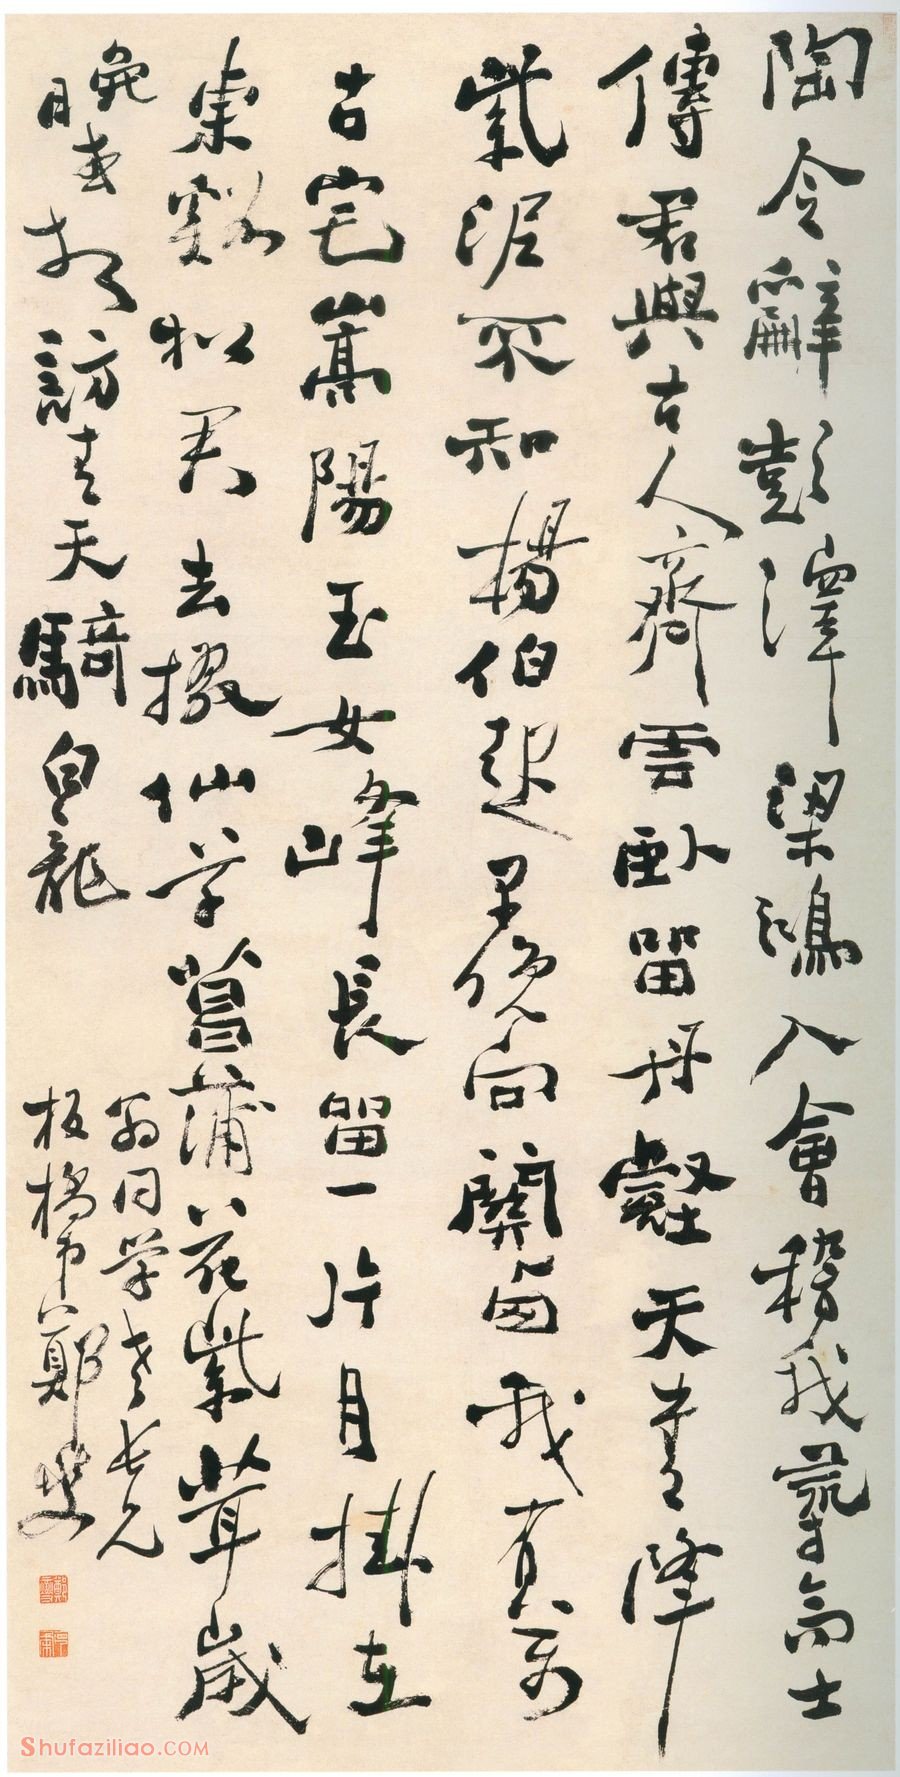 陶令辭彭澤梁鴻入會稽我尋高士
傳君與古人齊雲臥留丹壑天書降
紫泥不知楊伯起早晚向關西我有萬
古宅嵩陽玉女峰長留一片月掛在
東谿松君去掇仙草菖蒲花紫茸歲
晚相訪青天騎白龍
同學老長兄
板橋弟鄭燮
Shufaziliao.COM